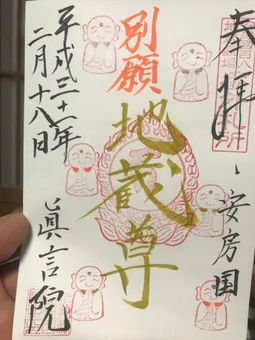 奉拝、安房国
別願
地蔵尊
平成三十一年
二月十八日
眞言院